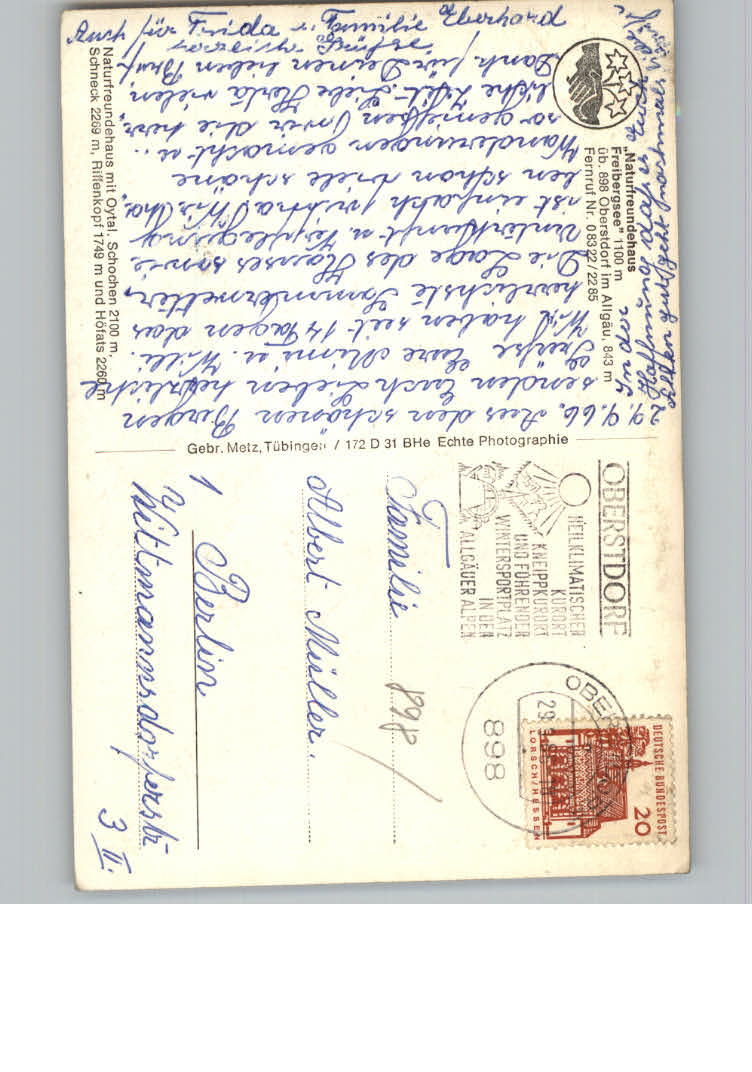 „Naturfreundehaus
Freibergsee" 1100 m
üb. 898 Oberstdorf im Allgäu, 843 m
Fernruf Nr. 08322/2285
29.9.66. Aus den schönen Bergen
senden Euch Lieben herzliche
Grüße Eure Mimi u. Willi.
Wir haben seit 14 Tagen das
herrlichste Sommerwetter,
Die Lage des Hauses sowie
Unterkunft u. Verpflegung
ist einfach prima! Wir ha-
ben schon viele schöne
Wanderungen gemacht u.
so genießen wir die herr-
liche Zeit. Liebe Herta vielen
Dank für Deinen lieben Brief
Auch für Frida u. Familie Eberhard
Naturfreundehaus mit Oytal. Schochen 2100 m,
Schneck 2269 m, Riffenkopf 1749 m und Höfats 2260 m
Gebr. Metz, Tübingen / 172 D 31 BHe Echte Photographie
OBERSTDORF
HEILKLIMATISCHER
KURORT
KNEIPPKURORT
UND FÜHRENDER
WINTERSPORTPLATZ
IN DEN
ALLGÄUER ALPEN
898
DEUTSCHE BUNDESPOST
20
LORSCH/HESSEN
Familie
898
Albert Müller.
1 Berlin
Wittmannsdorferstr
3 II.